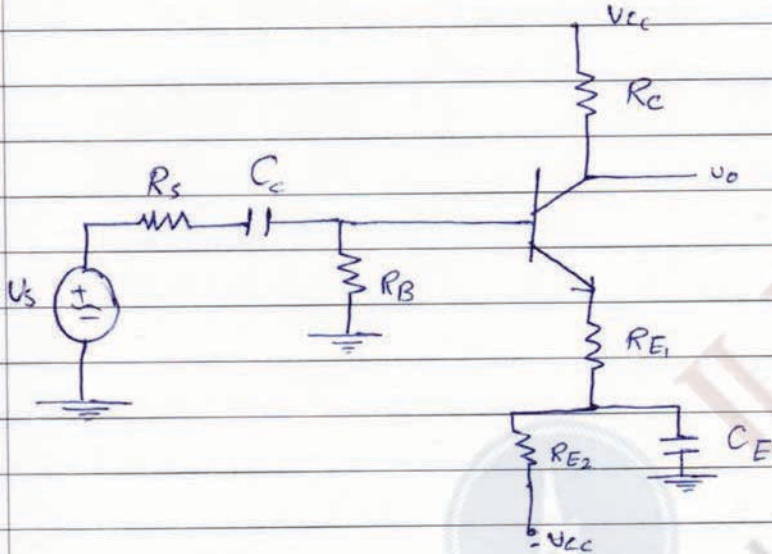 Vcc
Rc
Rs Cc
vo
Us
+
-
RB
RE1
RE2 CE
-Vcc